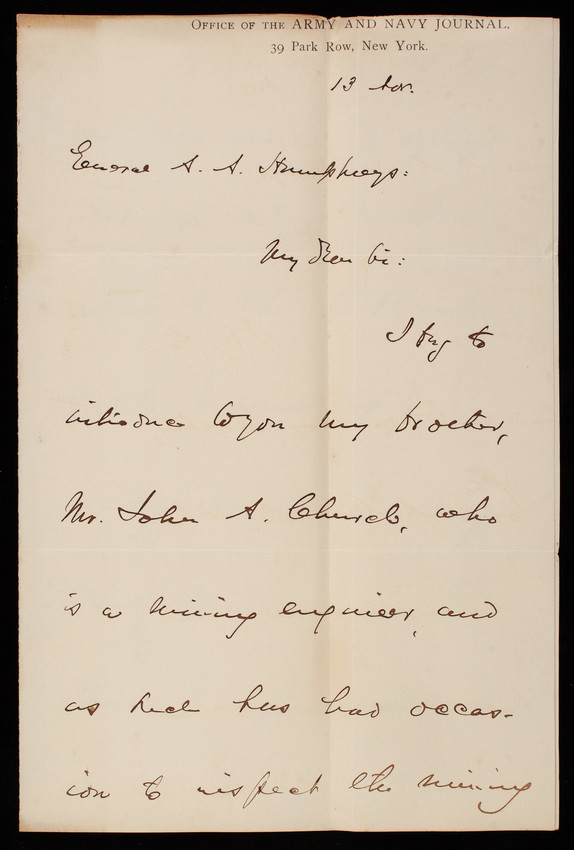 OFFICE OF THE ARMY AND NAVY JOURNAL.
39 Park Row, New York.
13 Nov.
General A. A. Humphreys:
My Dear Sir:
I beg to
introduce to you my brother,
Mr. John A. Church, who
is a mining engineer, and
as such has had occas-
ion to inspect the mining